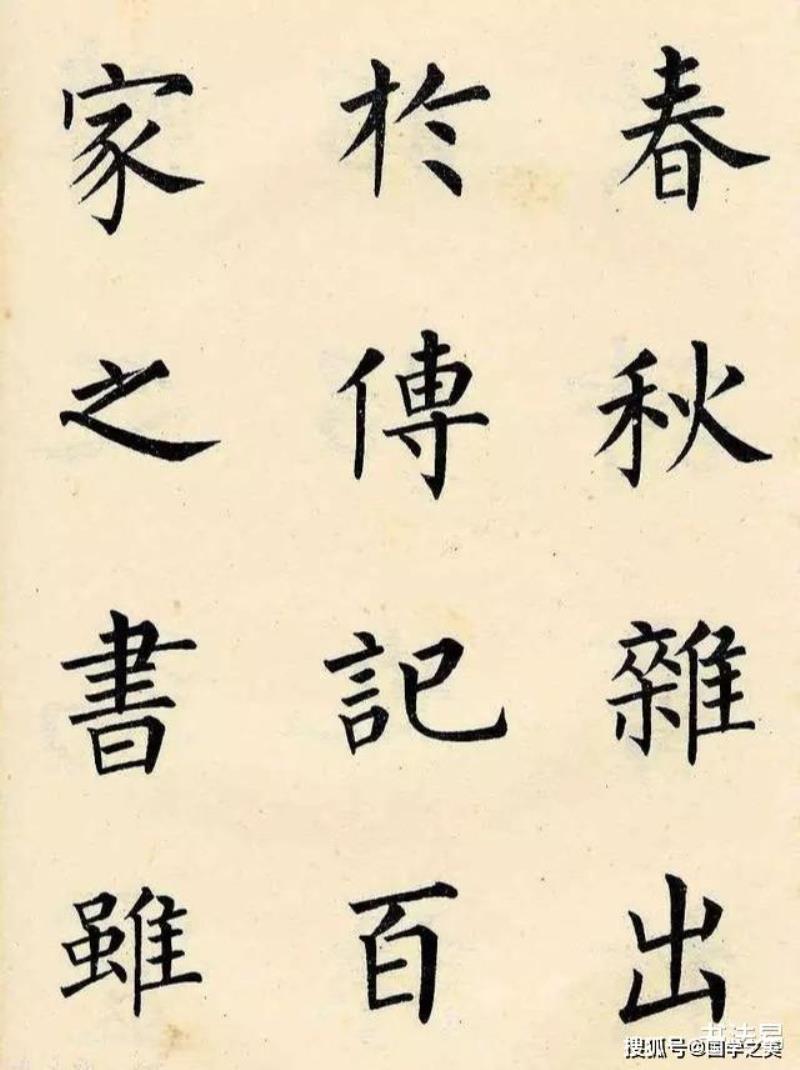 春秋雜出
於傳記百
家之書雖
搜狐号@国学之美